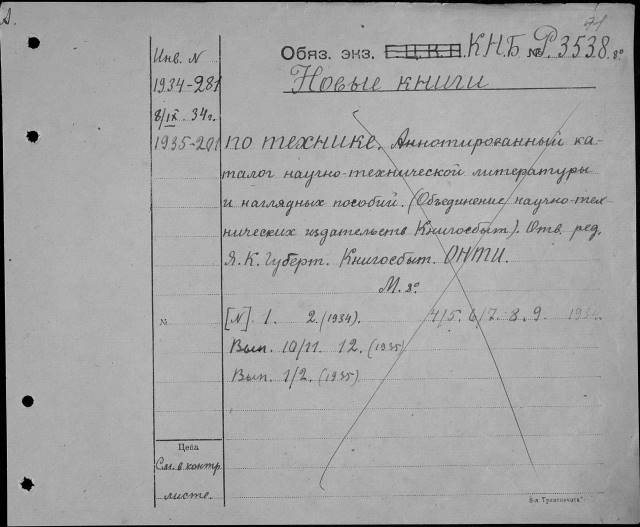 А.
71
Инв. N
Обяз. экз. Е.Ц.К.П. К.Н.Б № Р.3538. 8°
1934-281
Новые книги
8/IX 34г.
1935-201
по технике. Аннотированный ка-
талог научно-технической литературы
и наглядных пособий. (Объединение научно-тех-
нических издательств Книгосбыт). Отв. ред.
Я. К. Губерт. Книгосбыт. ОНТИ.
М. 8°.
№
[N] 1. 2. (1934). 4/5. 6/7. 8. 9. 1934.
Вып. 10/11. 12. (1935)
Вып. 1/2. (1935)
Цена
См. в контр.
листе.